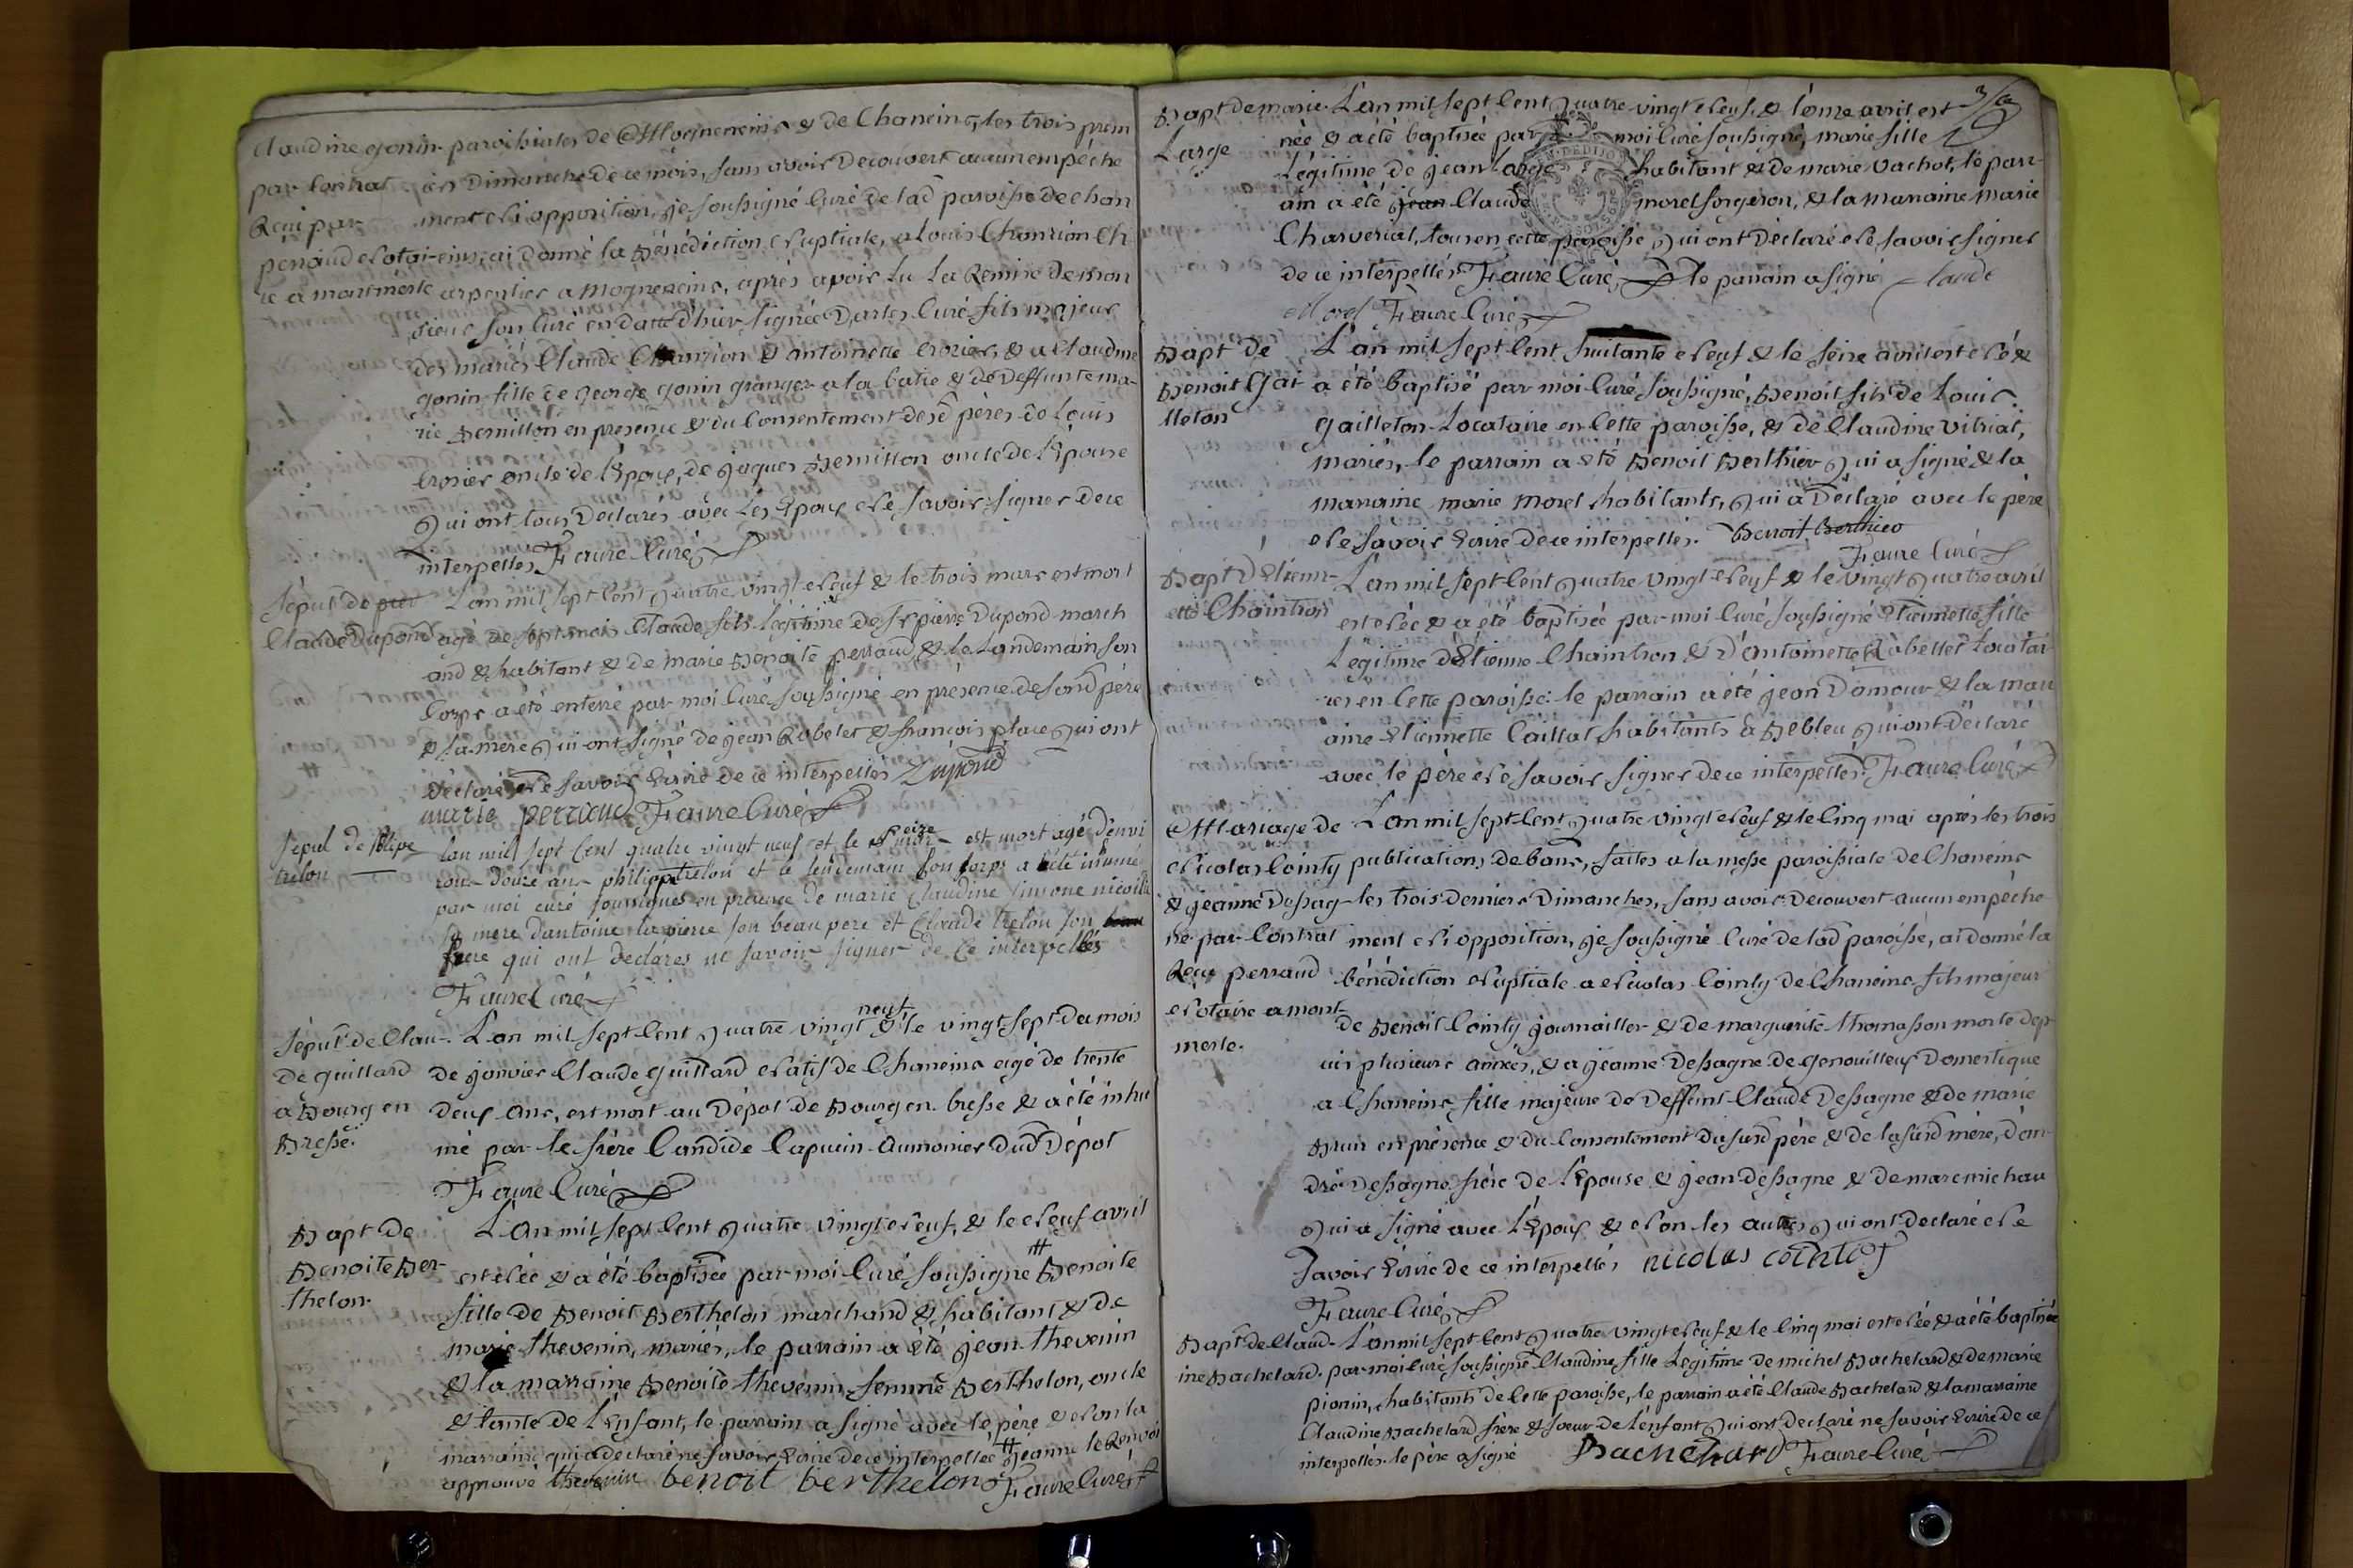 Claudine gonin paroissiales de Mogneneins & de Chaneins, les trois prem
par contrat iers Dimanche de ce mois, sans avoir Decouvert aucun empêche
Reçu par ment ni opposition, je soussigné Curé de lad paroisse de chan
perraud notai- eins, ai donné la Bénédiction nuptiale, a Louis Chanrion Ch
re a montmerle arpentier a Mogneneins, après avoir lu la Remise de mon
sieur son Curé en datte d'hier signée Dartes Curé fils majeur
des mariés Claude Chanrion & antoinette crozier, & a Claudine
gonin fille de george gonin granger a la batie & de Deffunte ma-
rie Bernillon en presence & du Consentement desd pères de Louis
crozier oncle de l'Epoux, de jaques Bernillon oncle de l'Epouse
qui ont tous Declarés avec les Epoux ne savoir signer de ce
interpellés Faure Curé
sepult de pier L'an mil sept Cent quatre vingt neuf & le trois mars est mort
Claude Dupond agé de sept mois Claude fils Légitime de sr pierre Dupond march
and & habitant & de marie Benoite perraud, & le Landemain son
Corps a été enterré par moi Curé soussigné en présence de sond père
& sa mère qui ont signé de jean Robelet & françois place qui ont
Déclaré ne savoir Ecrire de ce interpellés Dupond
marie perraud Faure Curé
sepul de Philipe lan mil sept Cent quatre vingt neuf et le seize mars est mort agé d'envi
trelon rons douze ans philippe trelon et le lendemain son corps a été inhumé
par moi curé soussigné en presence de marie Claudine simone nicolle
sa mere d'antoine lapierre son beau pere et Claude trelon son beau
frere qui ont declarés ne savoir signer de ce interpellés
Faure Curé
sépult de Clau- L'an mil sept Cent quatre vingt neuf & le vingt sept du mois
de guillard de janvier Claude guillard natif de Chaneins agé de trente
a Bourg en deux ans, est mort au Dépot de Bourg en bresse & a été inhu
Bresse. mé par le frère Candide Capucin aumonier dud Dépot
Faure Curé
Bapt de L'an mil sept Cent quatre vingt neuf, & le neuf avril
Benoite Ber- est née & a été baptisée par moi Curé soussigné # Benoite
thelon. fille de Benoit Berthelon marchand & habitant & de
marie thevenin, mariés, le parrain a été jean thevenin
& la marraine Benoite thevenin femme Berthelon, oncle
& tante de l'enfant, le parrain a signé avec le père & non la
marraine qui a declaré ne savoir Ecrire de ce interpellée # jeanne le Renvoi
approuvé thevenin benoit berthelon Faure Curé
3/e
Bapt de marie L'an mil sept Cent quatre vingt neuf, & l'onze avril est
Large née & a été baptisée par moi Curé soussigné, marie fille
Légitime de jean Large habitant & de marie vachot, le parr-
ain a été jean Claude morel forgeron, & la marraine marie
Charveriat, tous en cette paroisse qui ont Déclaré ne savoir signer
de ce interpellés Faure Curé, le parrain a signé Claude
Morel Faure Curé
Bapt de L'an mil sept Cent huitante neuf & le seize avril est né &
Benoit Gai a été baptisé par moi Curé soussigné, Benoit fils de Louis
lleton gailleton Locataire en Cette paroisse, & de Claudine vitriat,
mariés, le parrain a été Benoit Berthier qui a signé & la
marraine marie morel habitants, qui a Déclaré avec le père
ne savoir Ecrire de ce interpellés. Benoit Berthier
Faure Curé
Bapt d'Etienn- L'an mil sept Cent quatre vingt neuf & le vingt quatre avril
ette Chaintron est née & a été baptisée par moi Curé soussigné Etiennette fille
Legitime d'Etienne Chaintron & d'antoinette Robellet Locatai-
res en Cette paroisse: le parrain a été jean Damour & la marr
aine Etiennette Caillat habitants a Bebleu qui ont Déclaré
avec le père ne savoir signer de ce interpellés. Faure Curé
Mariage de L'an mil sept Cent quatre vingt neuf & le Cinq mai après les trois
nicolas Cointy publications de bans, faites a la messe paroissiale de Chaneins
& jeanne Dessag- les trois derniers Dimanches, sans avoir Decouvert aucun empêche-
ne par Contrat ment ni opposition, je soussigné Curé de lad paroisse, ai donné la
Reçu perraud bénédiction nuptiale a nicolas Cointy de Chaneins fils majeur
notaire a mont- de Benoit Cointy journallier & de marguerite thomasson morte dep-
merle. uis plusieurs années, & a jeanne Dessagne de genouilleux Domestique
a Chaneins fille majeure de Deffunt Claude Dessagne & de marie
Brun en présence & du Consentement dususd père & de lasusd mère, d'an-
dré Dessagne frère de l'Epouse & jean dessagne & de marc michau
qui a signé avec l'Epoux & non les autres qui ont declaré ne
savoir Ecrire de ce interpellés nicolas cointy
Faure Curé
Bapt de Claud- L'an mil sept Cent quatre vingt neuf & le Cinq mai est née & a été baptisée
ine Bachelard. par moi Curé soussigné Claudine fille Légitime de michel Bachelard & de marie
pionin, habitants de Cette paroisse, le parrain a été Claude Bachelard & la marraine
Claudine Bachelard frère & soeur de l'enfant qui ont declaré ne savoir Ecrire de ce
interpellés. le père a signé Bachelard Faure Curé